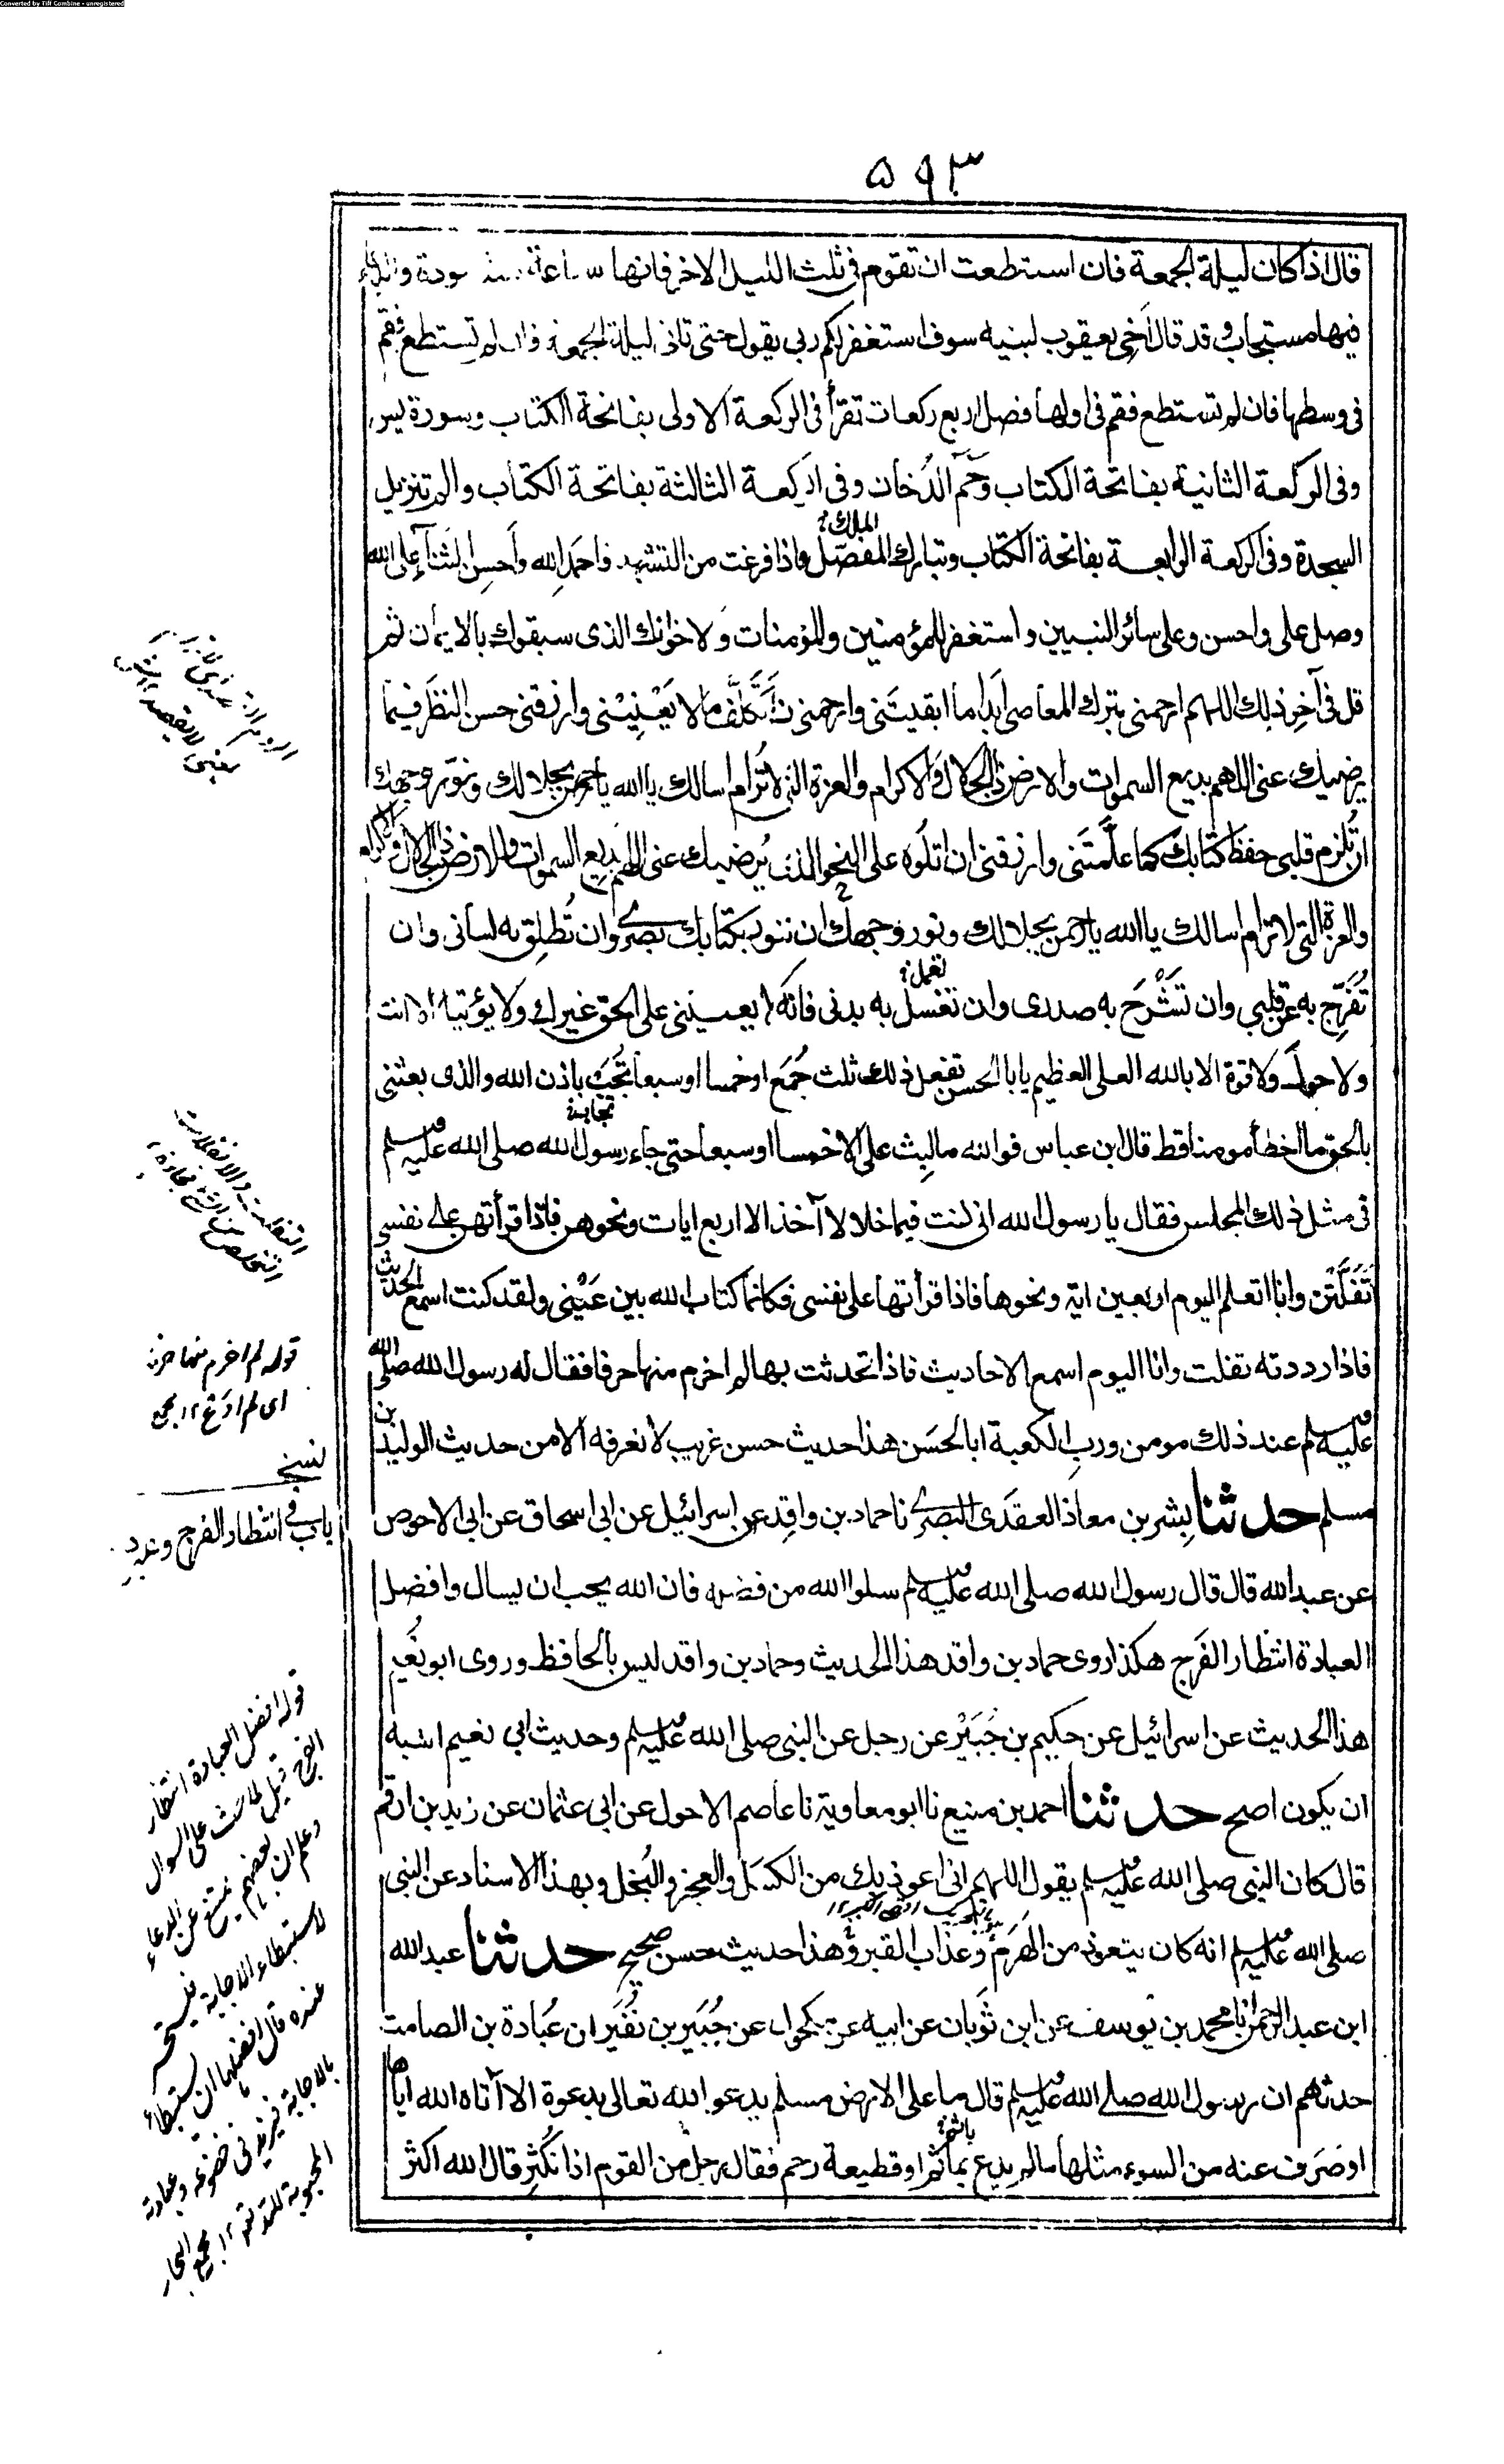 Converted by Tiff Combine - unregistered
۵۹۳
قال اذا كان ليلة الجمعة فان استطعت ان تقوم فى ثلث الليل الاخر فانها ساعة والدعاء
فيها مستجاب وقد قال اخى يعقوب لبنيه سوف استغفر لكم ربى يقول حتى تاتى ليلة الجمعة فان لم تستطع فقم
فى وسطها فان لم تستطع فقم فى اولها فصل اربع ركعات تقرأ فى الركعة الاولى بفاتحة الكتاب وسورة يس
وفى الركعة الثانية بفاتحة الكتاب وحٓمٓ الدُخان وفى الركعة الثالثة بفاتحة الكتاب والم تنزيل
الملك
السجدة وفى الركعة الرابعة بفاتحة الكتاب وتبارك المفصّل فاذا فرغت من التشهد فاحمَدِ الله وأحسِن الثناء على الله
وصل على واحسن وعلى سائر النبيين واستغفر للمؤمنين والمؤمنات ولاخوانك الذى سبقوك بالايمان ثم
قل فى آخِر ذلك اللهم ارحمنى بترك المعاصى أبداما ابقيتَنى وارحمنى ان أتكلَّفَ ما لا يَعْنِيْنى وارزقنى حسن النظَر فيما
يرضيك عنى اللهم بديع السموات والارض ذا الجلال والاكرام والعزة التى لا تُرام اسالك يا الله يا رحمن بجلالك ونور وجهك
ان تُلزم قلبى حفظ كتابك كما علَّمتَنى وارزقنى ان اتلُوه على النحو الذى يُرضيك عنى اللهم بديع السموات والارض ذا الجلال والاكرام
والعزة التى لا ترام اسالك يا الله يا رحمن بجلالك ونور وجهك ان تنور بكتابك بصرى وان تُطلِق به لسانى وان
تعمل
تُفَرِّج به عن قلبى وان تَشْرَح به صدرى وان تغسل به بدنى فانه لا يعيننى على الحق غيرك ولا يؤتيه الا انت
ولا حول ولا قوة الا بالله العلى العظيم يا ابا الحسن تفعل ذلك ثلث جُمَع او خمسا او سبعا تُجَب باذن الله والذى بعثنى
تجاب
بالحق ما اخطأ مومنا قط قال ابن عباس فوالله ما لبِث على الا خمسا او سبعا حتى جاء رسول الله صلى الله عليه وسلم
فى مثل ذلك المجلس فقال يا رسول الله انى كنت فيما خلا لا آخذ الا اربع ايات ونحوهن فاذا قرأتهن على نفسى
تَفَلَّتْن وانا اتعلم اليوم اربعين اية ونحوها فاذا قرأتها على نفسى فكانما كتاب الله بين عَيْنى ولقد كنت اسمع الحديث
فاذا رددته تفلت وانا اليوم اسمع الاحاديث فاذا تحدثت بها لم اخرم منها حرفا فقال له رسول الله صلى الله
عليه وسلم عند ذلك مومن وربِ الكعبة ابا الحسَن هذا حديث حسن غريب لا نعرفه الا من حديث الوليد بن
مسلم حدثنا بِشر بن معاذ العقَدى البصرى نا حماد بن واقِد عن اسرائيل عن ابى اسحاق عن ابى الاحوص
عن عبد الله قال قال رسول الله صلى الله عليه وسلم سلوا الله من فضله فان الله يحب ان يسال وافضل
العبادة انتظار الفَرَج هكذا روى حماد بن واقد هذا الحديث وحماد بن واقد ليس بالحافظ وروى ابو نُعَيم
هذا الحديث عن اسرائيل عن حكيم بن جُبَيْر عن رجل عن النبى صلى الله عليه وسلم وحديث ابى نعيم اشبه
ان يكون اصح حدثنا احمد بن منيع نا ابو معاوية نا عاصم الاحول عن ابى عثمان عن زيد بن ارقم
قال كان النبى صلى الله عليه وسلم يقول اللهم انى اعوذ بك من الكسل والعجز والبُخل وبهذا الاسناد عن النبى
صلى الله عليه وسلم انه كان يتعوذ من الهَرَم وعذاب القبر وهذا حديث حسن صحيح حدثنا عبد الله
ابن عبد الرحمن انا محمد بن يوسف عن ابن ثَوبان عن ابيه عن مكحول عن جُبَير بن نُفَير ان عُبَادة بن الصامت
حدثهم ان رسول الله صلى الله عليه وسلم قال ما على الارض مسلم يدعو الله تعالى بدعوة الا آتاه الله اياها
باثم
او صَرَف عنه من السوء مثلها ما لم يدع بماثم او قطيعة رحم فقال رجل من القوم اذا نُكثِر قال الله اكثر
قوله لم اخرم منها حرفا
اى لم ادَعْ ١٢ مجمع
نسخ
باب فى انتظار الفرج وغير
قوله افضل العبادة انتظار
الفرج قيل لما حث على السوال
وعلم ان بعضهم يمتنع عن الدعاء
لاستبطاء الاجابة
عنده قال افضلها ان يستبطئ
بالاجابة فيزيد فى خضوعه وعبادته
المحبوبة لله تعالى ١٢ مجمع البحار